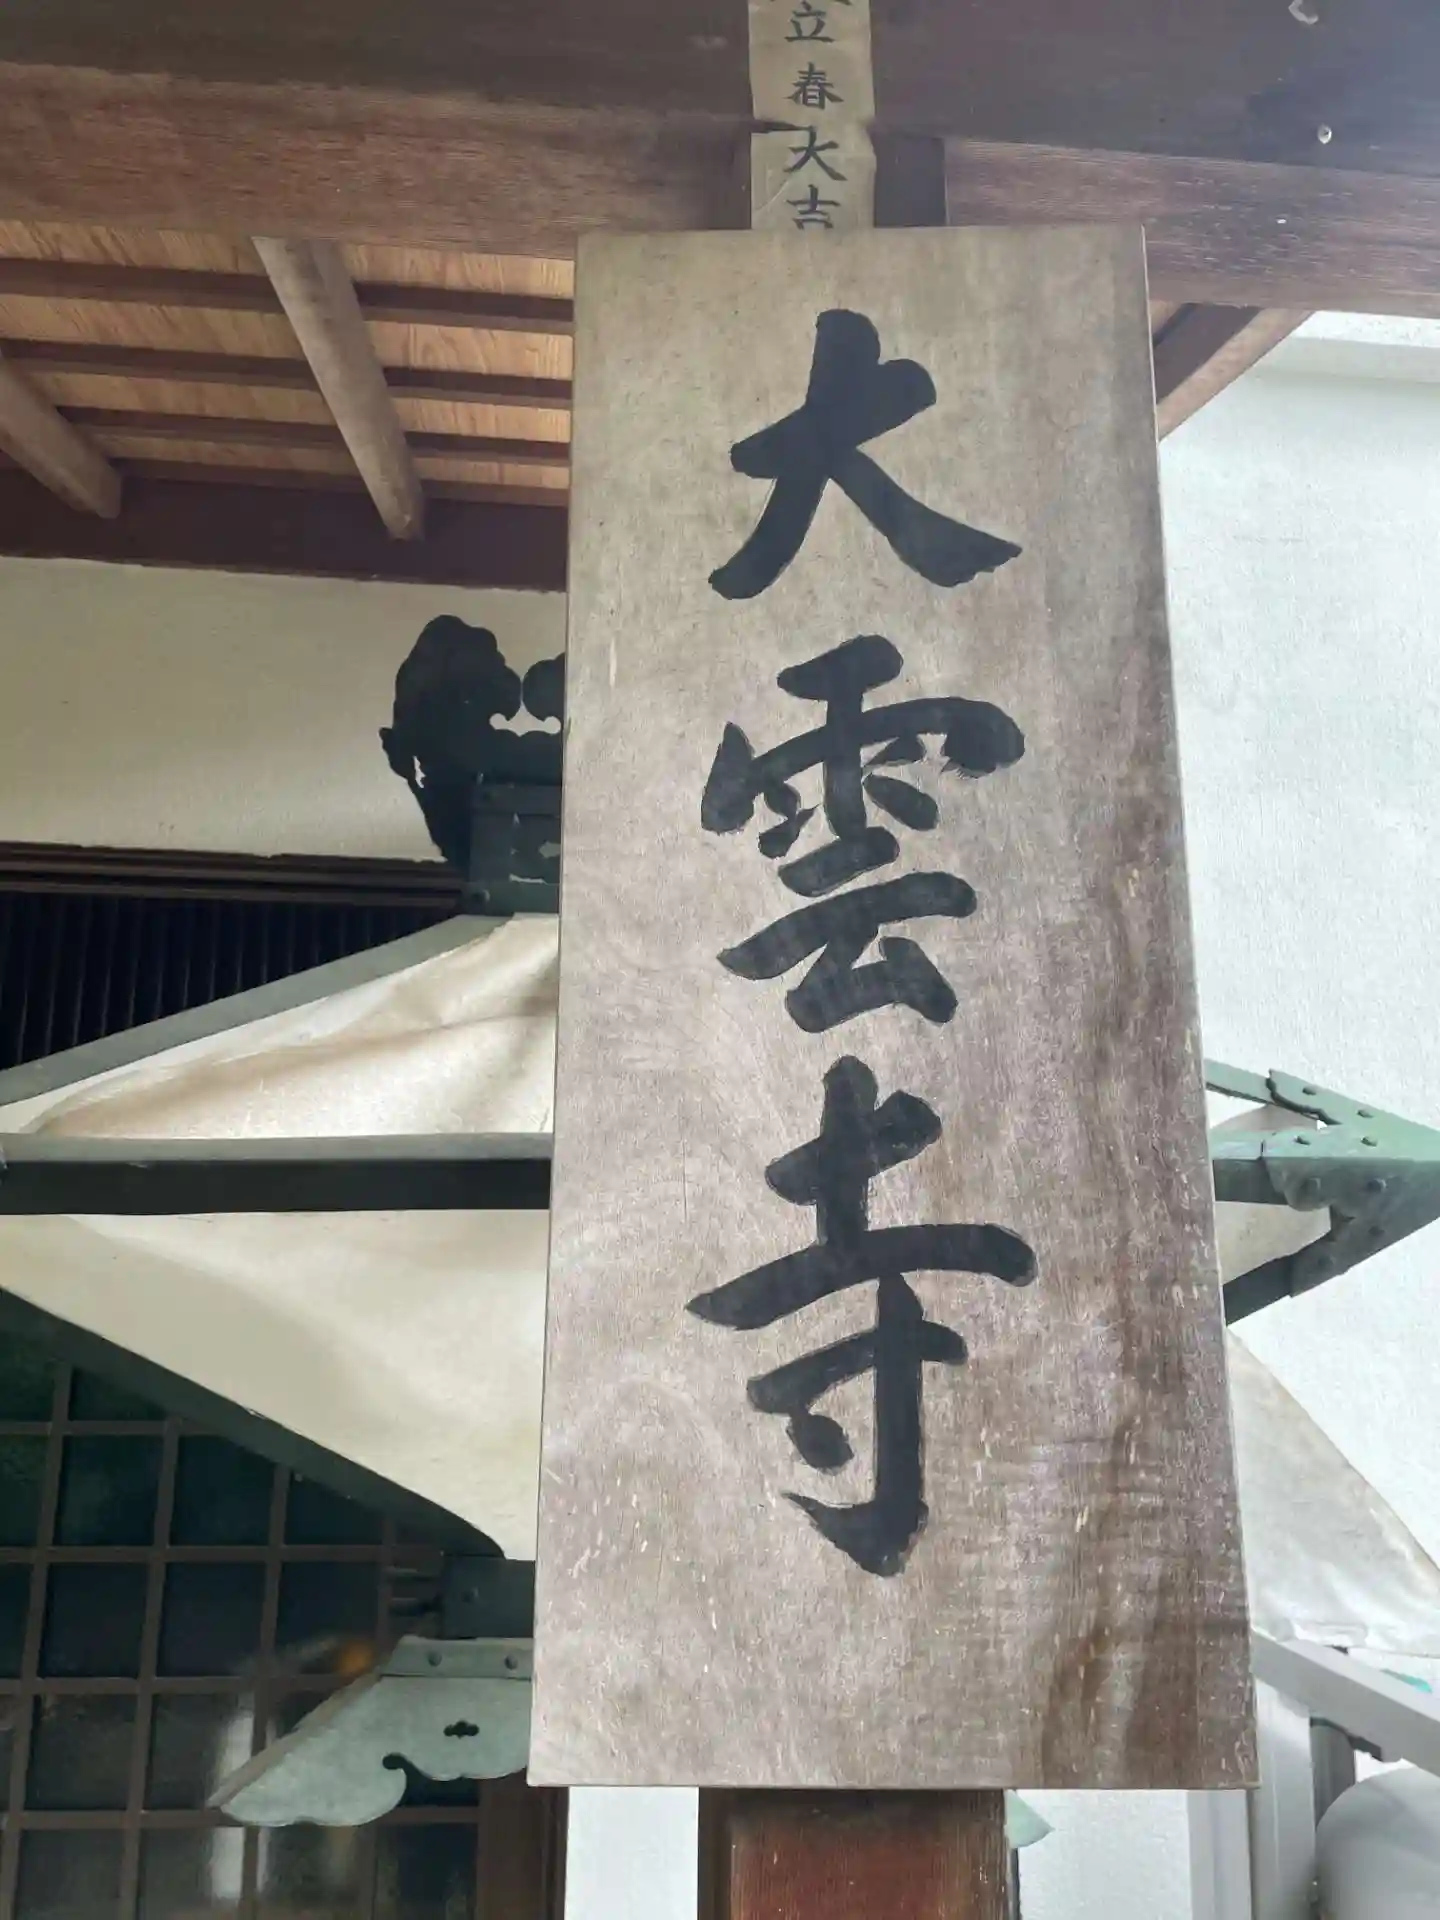 立春大吉
大雲寺